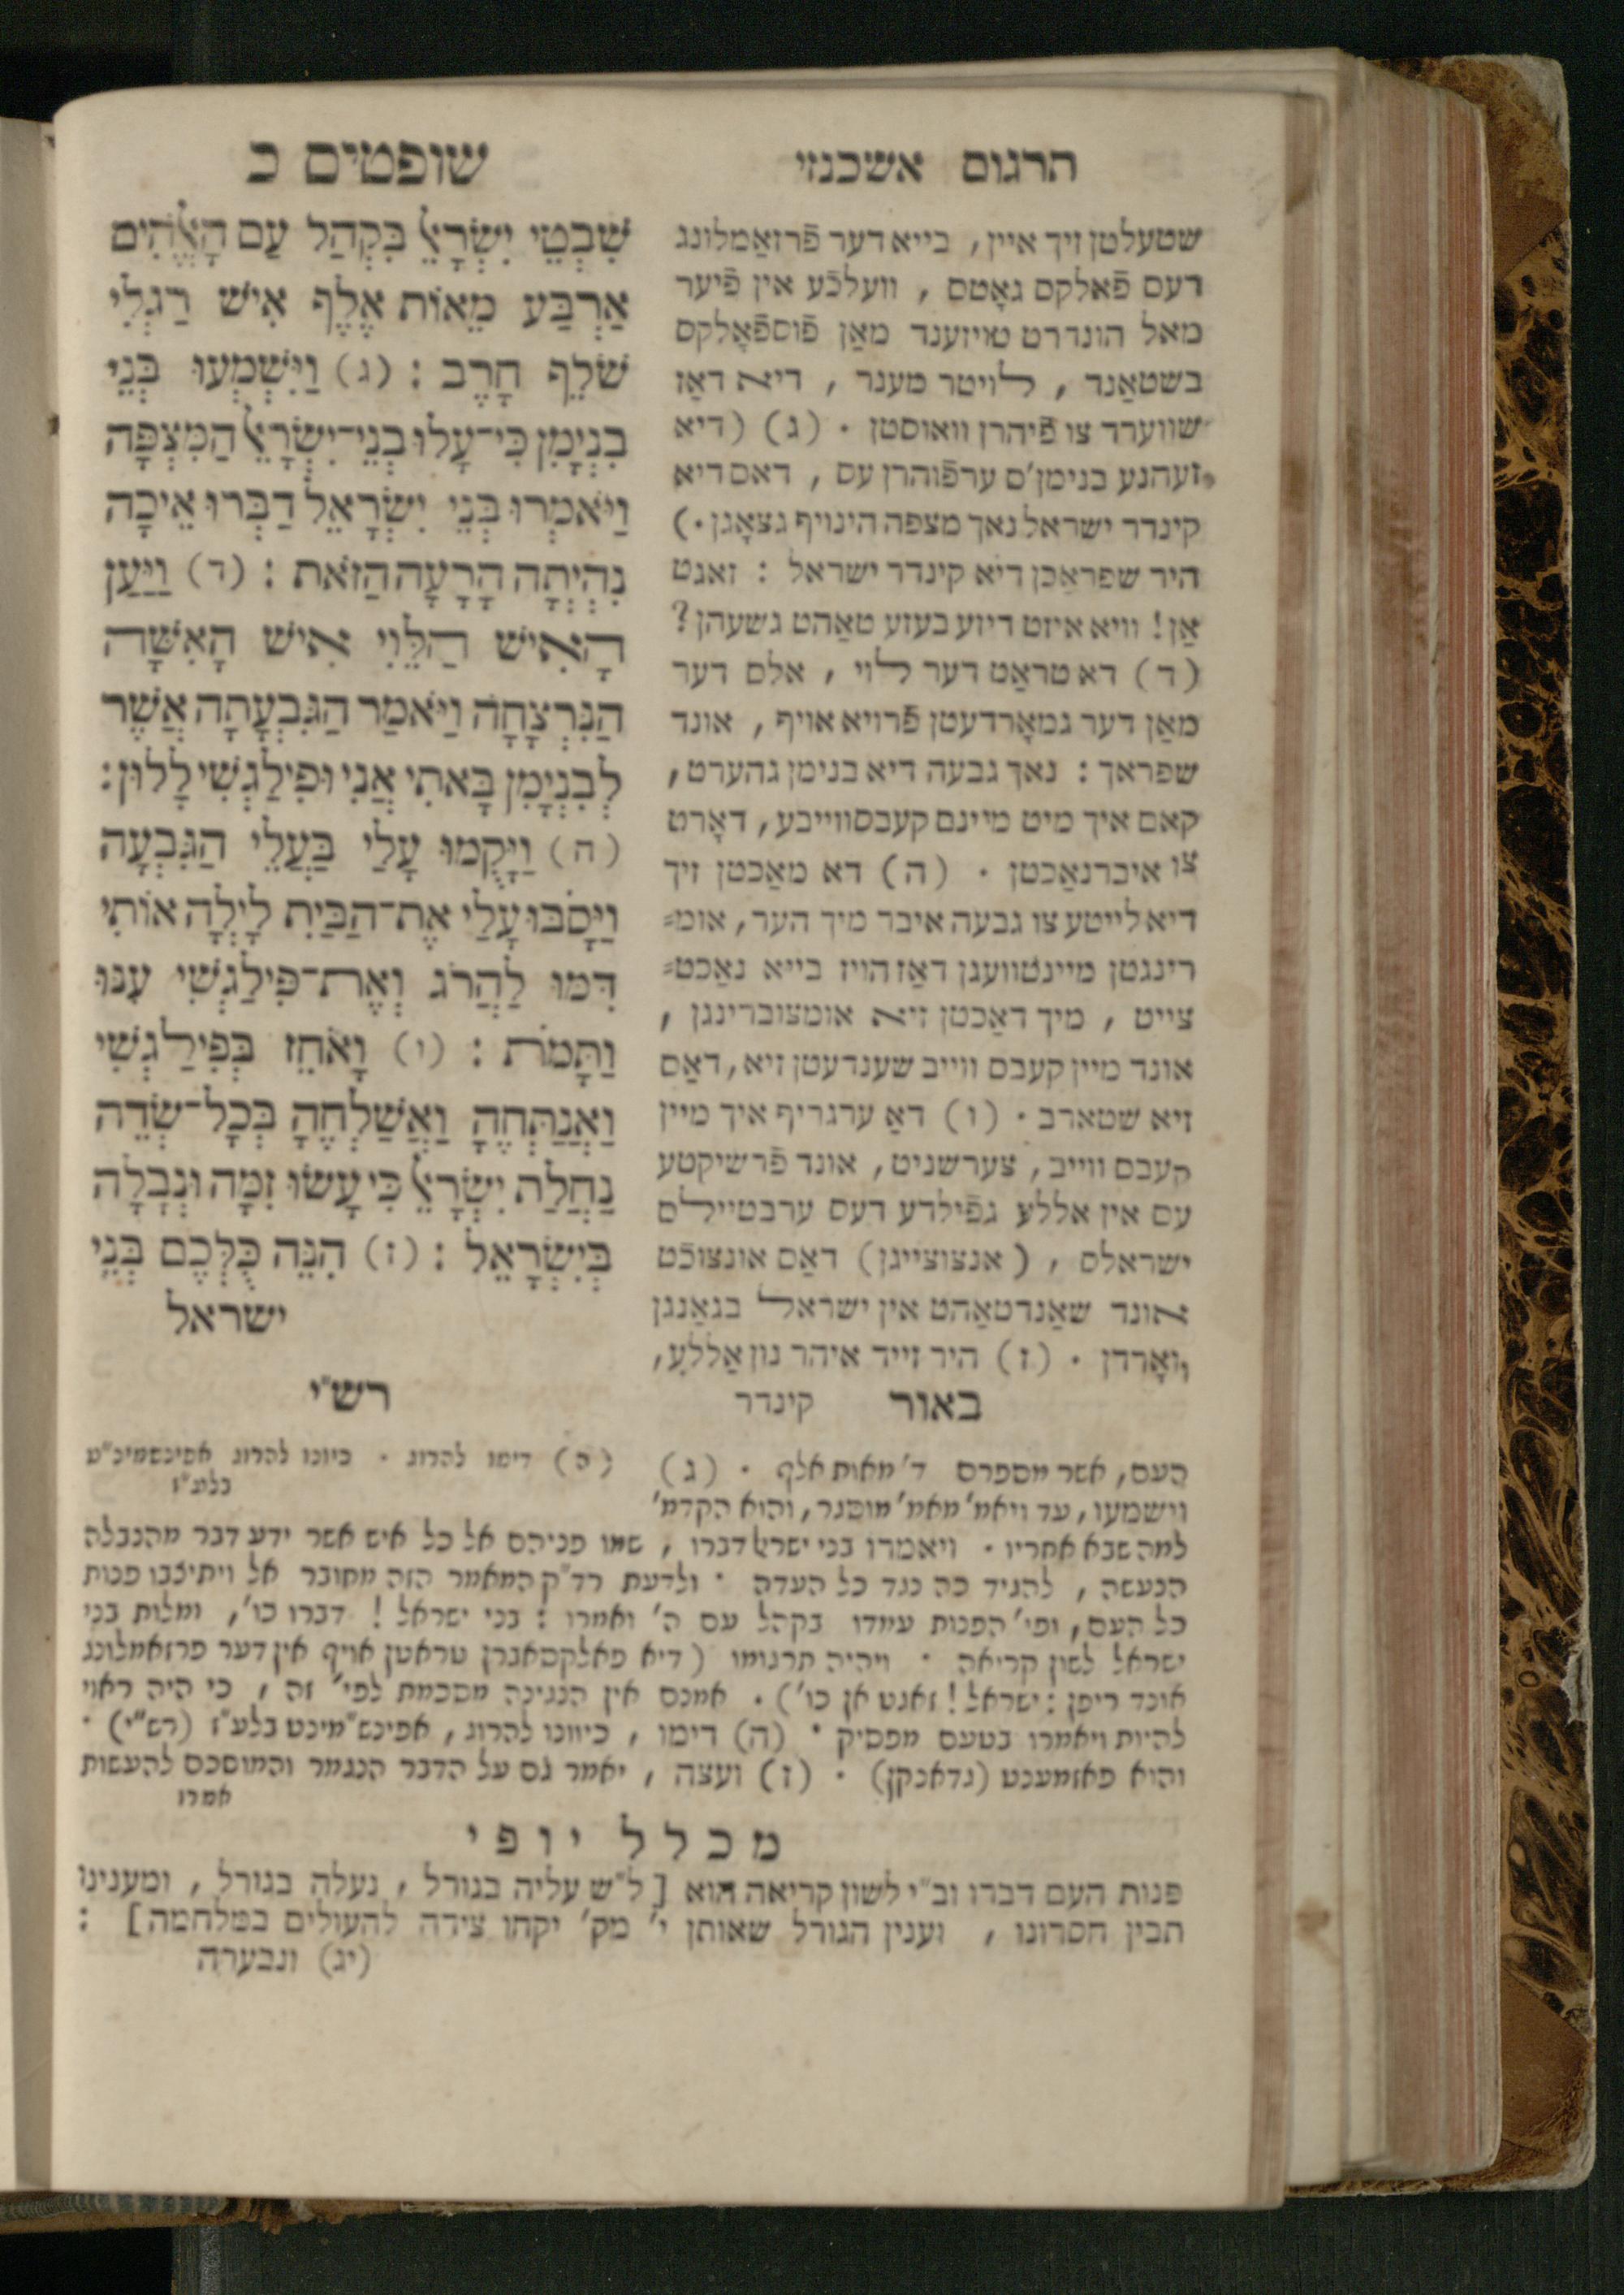 שופטים כ
שִׁבְטֵי יִשְׂרָאֵל בִּקְהַל עַם הָאֱלֹהִים
אַרְבַּע מֵאוֹת אֶלֶף אִישׁ רַגְלִי
שֹׁלֵף חָרֶב : (ג) וַיִּשְׁמְעוּ בְּנֵי
בִנְיָמִן כִּי־עָלוּ בְנֵי־יִשְׂרָאֵל הַמִּצְפָּה
וַיֹּאמְרוּ בְּנֵי יִשְׂרָאֵל דַּבְּרוּ אֵיכָה
נִהְיְתָה הָרָעָה הַזֹּאת : (ד) וַיַּעַן
הָאִישׁ הַלֵּוִי אִישׁ הָאִשָּׁה
הַנִּרְצָחָה וַיֹּאמַר הַגִּבְעָתָה אֲשֶׁר
לְבִנְיָמִן בָּאתִי אֲנִי וּפִילַגְשִׁי לָלוּן :
(ה) וַיָּקֻמוּ עָלַי בַּעֲלֵי הַגִּבְעָה
וַיָּסֹבּוּ עָלַי אֶת־הַבַּיִת לָיְלָה אוֹתִי
דִּמּוּ לַהֲרֹג וְאֶת־פִּילַגְשִׁי עִנּוּ
וַתָּמֹת : (ו) וָאֹחֵז בְּפִילַגְשִׁי
וָאֲנַתְּחֶהָ וָאֲשַׁלְּחֶהָ בְּכָל־שְׂדֵה
נַחֲלַת יִשְׂרָאֵל כִּי עָשׂוּ זִמָּה וּנְבָלָה
בְּיִשְׂרָאֵל : (ז) הִנֵּה כֻלְּכֶם בְּנֵי
ישראל
תרגום אשכנזי
שטעלטן זיך איין, בייא דער פֿרזאַמלונג
דעס פֿאלקס גאָטס , וועלכֿע אין פֿיער
מאל הונדרט טויזענד מאַן פֿוספֿאָלקס
בשטאַנד , לויטר מענר , דיא דאַז
שווערד צו פֿיהרן וואוסטן . (ג) (דיא
זעהנע בנימן'ס ערפֿוהרן עס , דאס דיא
קינדר ישראל נאך מצפה הינויף גצאָגן.)
היר שפראַכן דיא קינדר ישראל : זאגט
אַן! וויא איזט דיזע בעזע טאַהט גשעהן?
(ד) דא טראַט דער לוי , אלס דער
מאַן דער גמאָרדעטן פֿרויא אויף , אונד
שפראך : נאך גבעה דיא בנימן גהערט,
קאם איך מיט מיינם קעבסווייבע, דאָרט
צו איברנאַכטן . (ה) דא מאַכטן זיך
דיא לייטע צו גבעה איבר מיך הער, אומ=
רינגטן מיינטוועגן דאַז הויז בייא נאַכט=
צייט , מיך דאַכטן זיא אומצוברינגן ,
אונד מיין קעבס ווייב שענדעטן זיא, דאַס
זיא שטארב . (ו) דאַ ערגריף איך מיין
קעבס ווייב, צערשניט, אונד פֿרשיקטע
עס אין אללע גפֿילדע דעס ערבטיילס
ישראלס , (אנצוצייגן) דאַס אונצוכֿט
אונד שאַנדטאַהט אין ישראל בגאַנגן
וואָרדן . (ז) היר זייד איהר נון אַללע,
קינדר
רש"י
(ה) דימו להרוג . כיוונו להרוג אפינשמינ"ט
בלע"ז
באור
העם, אשר מספרם ד' מאות אלף . (ג)
וישמעו, עד ויאמ' מאמ' מוסגר, והוא הקדמ'
למה שבא אחריו . ויאמרו בני ישראל דברו , שמו פניהם אל כל איש אשר ידע דבר מהנבלה
הנעשה , להגיד כה נגד כל העדה . ולדעת רד"ק המאמר הזה מחובר אל ויתיצבו פנות
כל העם, ופי' הפנות עמדו בקהל עם ה' ואמרו : בני ישראל ! דברו כו', ומלות בני
ישראל לשון קריאה . ויהיה תרגומו (דיא פאלקסאברן טראטן אויף אין דער פרזאמלונג
אונד ריפן : ישראל! זאגט אן כו'). אמנם אין הנגינה מסכמת לפי' זה , כי היה ראוי
להיות ויאמרו בטעם מפסיק . (ה) דימו , כיוונו להרוג, אפינש"מינט בלע"ז (רש"י) .
והוא פאזמענט (גדאנקן) . (ז) ועצה , יאמר גם על הדבר הנגמר והמוסכם להעשות
אמרו
מכלל יופי
פנות העם דברו וב"י לשון קריאה הוא [ל"ש עליה בגורל , נעלה בגורל , ומענינו
תבין חסרונו , וענין הגורל שאותן י' מק' יקחו צידה להעולים במלחמה] :
(יג) ונבערה